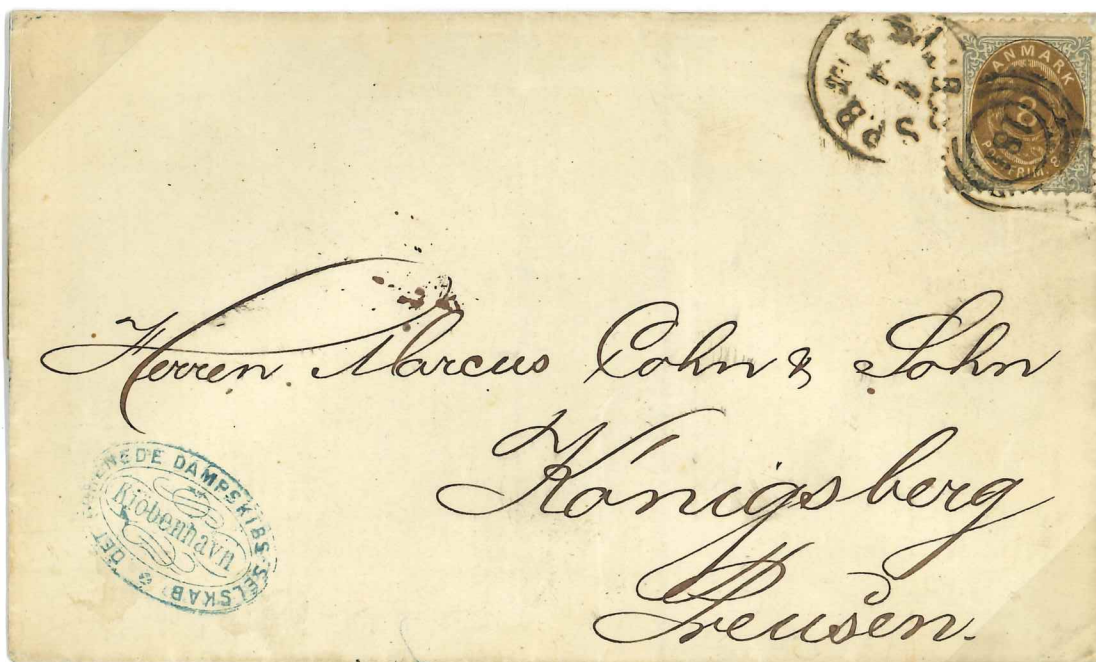 DANMARK
8
POSTFRIM.
Herren Marcus Cohn & Sohn
Königsberg
Preusen.
DET FORENEDE DAMPSKIBS-SELSKAB
Kiöbenhavn